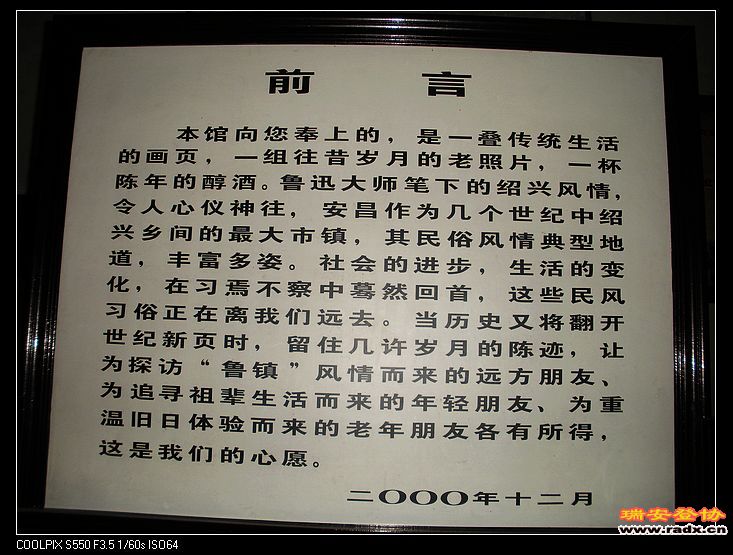 前言
本馆向您奉上的，是一叠传统生活
的画页，一组往昔岁月的老照片，一杯
陈年的醇酒。鲁迅大师笔下的绍兴风情，
令人心仪神往，安昌作为几个世纪中绍
兴乡间的最大市镇，其民俗风情典型地
道，丰富多姿。社会的进步，生活的变
化，在习焉不察中蓦然回首，这些民风
习俗正在离我们远去。当历史又将翻开
世纪新页时，留住几许岁月的陈迹，让
为探访“鲁镇”风情而来的远方朋友、
为追寻祖辈生活而来的年轻朋友、为重
温旧日体验而来的老年朋友各有所得，
这是我们的心愿。
二OOO年十二月
瑞安登协
www.radx.cn
COOLPIX S550 F3.5 1/60s ISO64